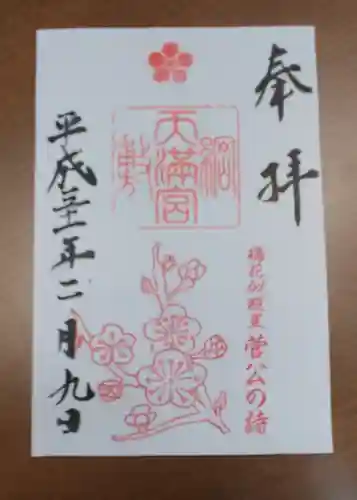 奉拝
綱敷天満宮
梅花似照星 菅公の詩
平成三十一年二月九日